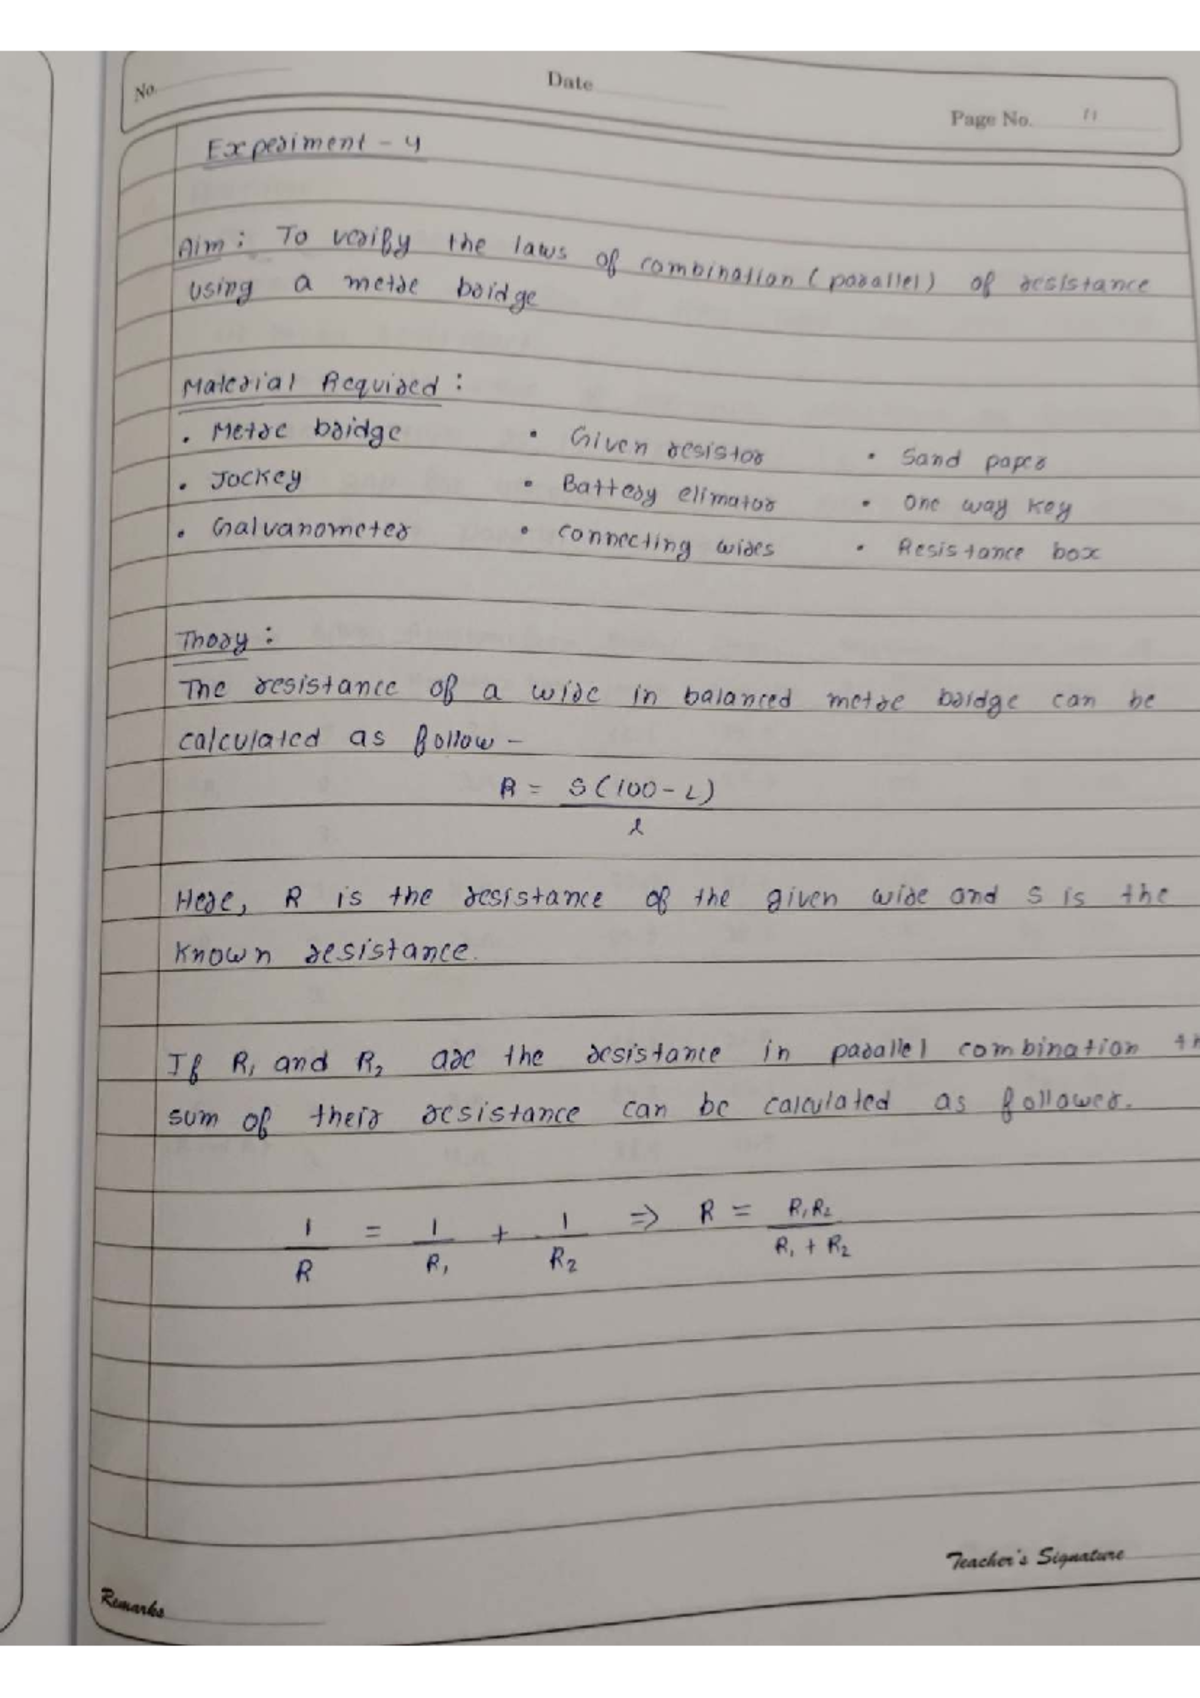 No.
Date
Page No. 11
Experiment - 4
Aim : To verify the laws of combination (parallel) of resistance
using a metre bridge
Material Required :
• Metre bridge • Given resistor • Sand paper
• Jockey • Battery elimator • One way key
• Galvanometer • connecting wires • Resistance box
Thory :
The resistance of a wire in balanced metre bridge can be
calculated as follow -
R = S(100 - L)
l
Here, R is the resistance of the given wire and S is the
known resistance.
If R₁ and R₂ are the resistance in parallel combination th
sum of their resistance can be calculated as follower.
1/R = 1/R₁ + 1/R₂ ⇒ R = R₁R₂/R₁ + R₂
Teacher's Signature
Remarks